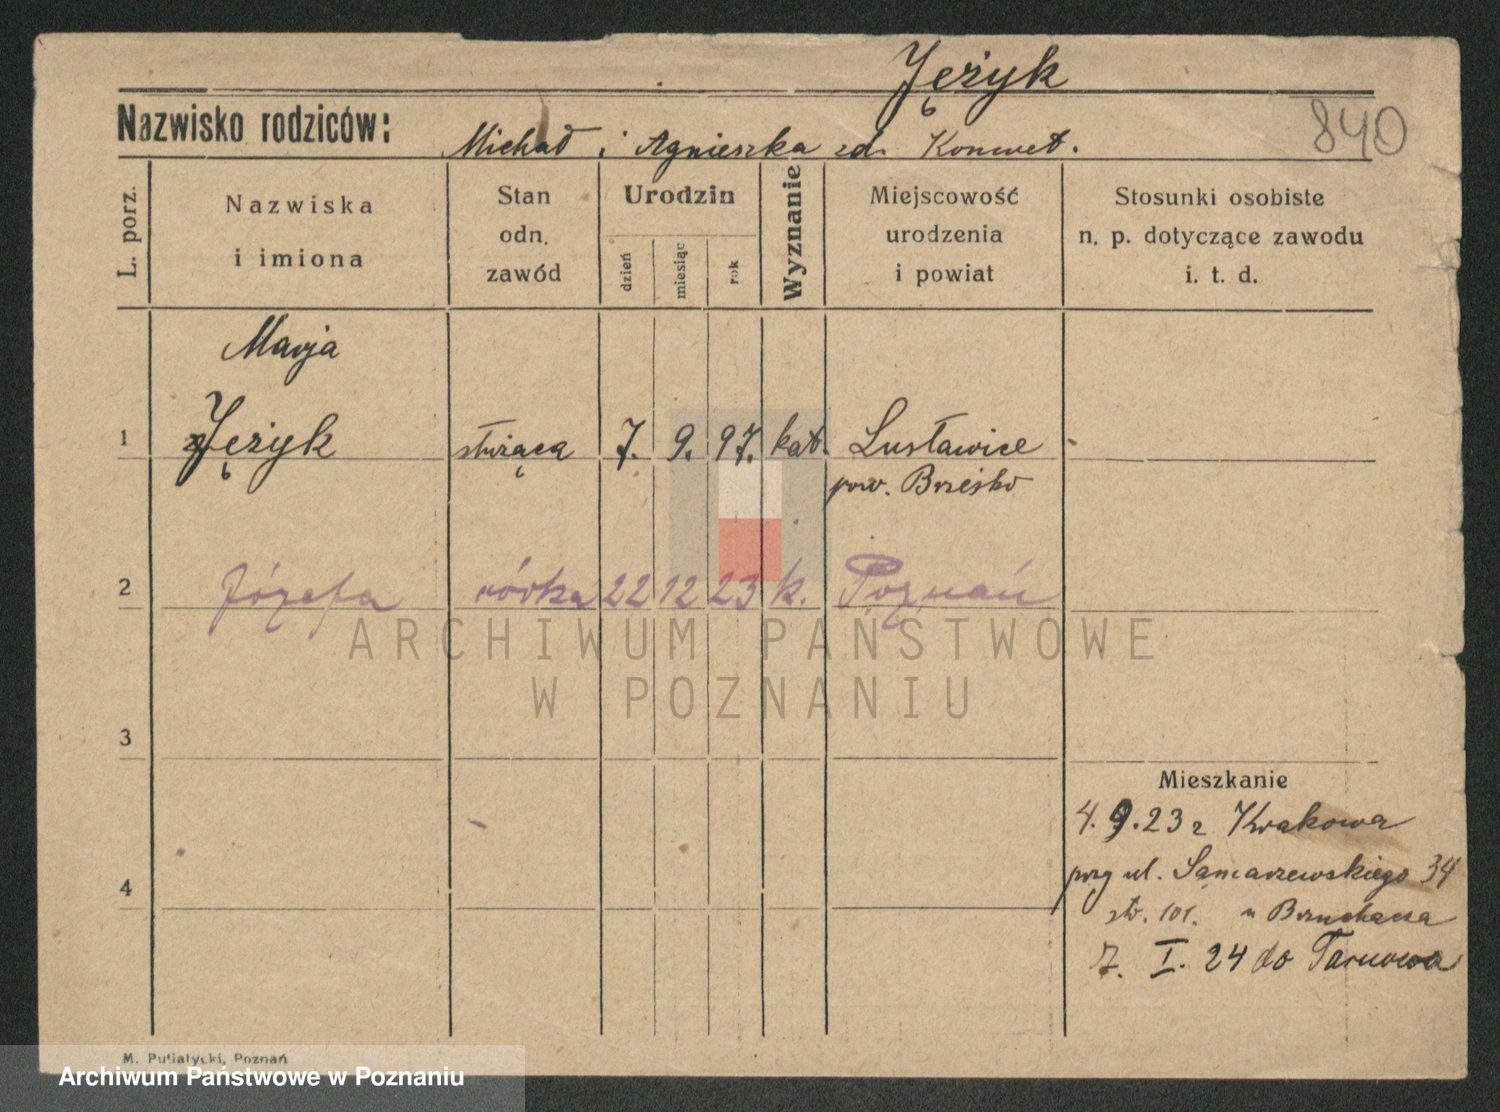 Jężyk
840
Nazwisko rodziców:
Michał i Agnieszka zd. Konwet.
L. porz.
Nazwiska
i imiona
Stan
odn.
zawód
Urodzin
dzień
miesiąc
rok
Wyznanie
Miejscowość
urodzenia
i powiat
Stosunki osobiste
n. p. dotyczące zawodu
i. t. d.
Marja
1 Jężyk służąca 7. 9. 97. kat. Lusławice
pow. Brzesko
2 Józefa córka 22 12 23 k. Poznań
ARCHIWUM PAŃSTWOWE
W POZNANIU
3
Mieszkanie
4. 9. 23 z Krakowa
przy ul. Samarzewskiego 34
4
str. 101. u Brzuchacza
7. I. 24 do Tarnowa
M. Putiatycki, Poznań
Archiwum Państwowe w Poznaniu